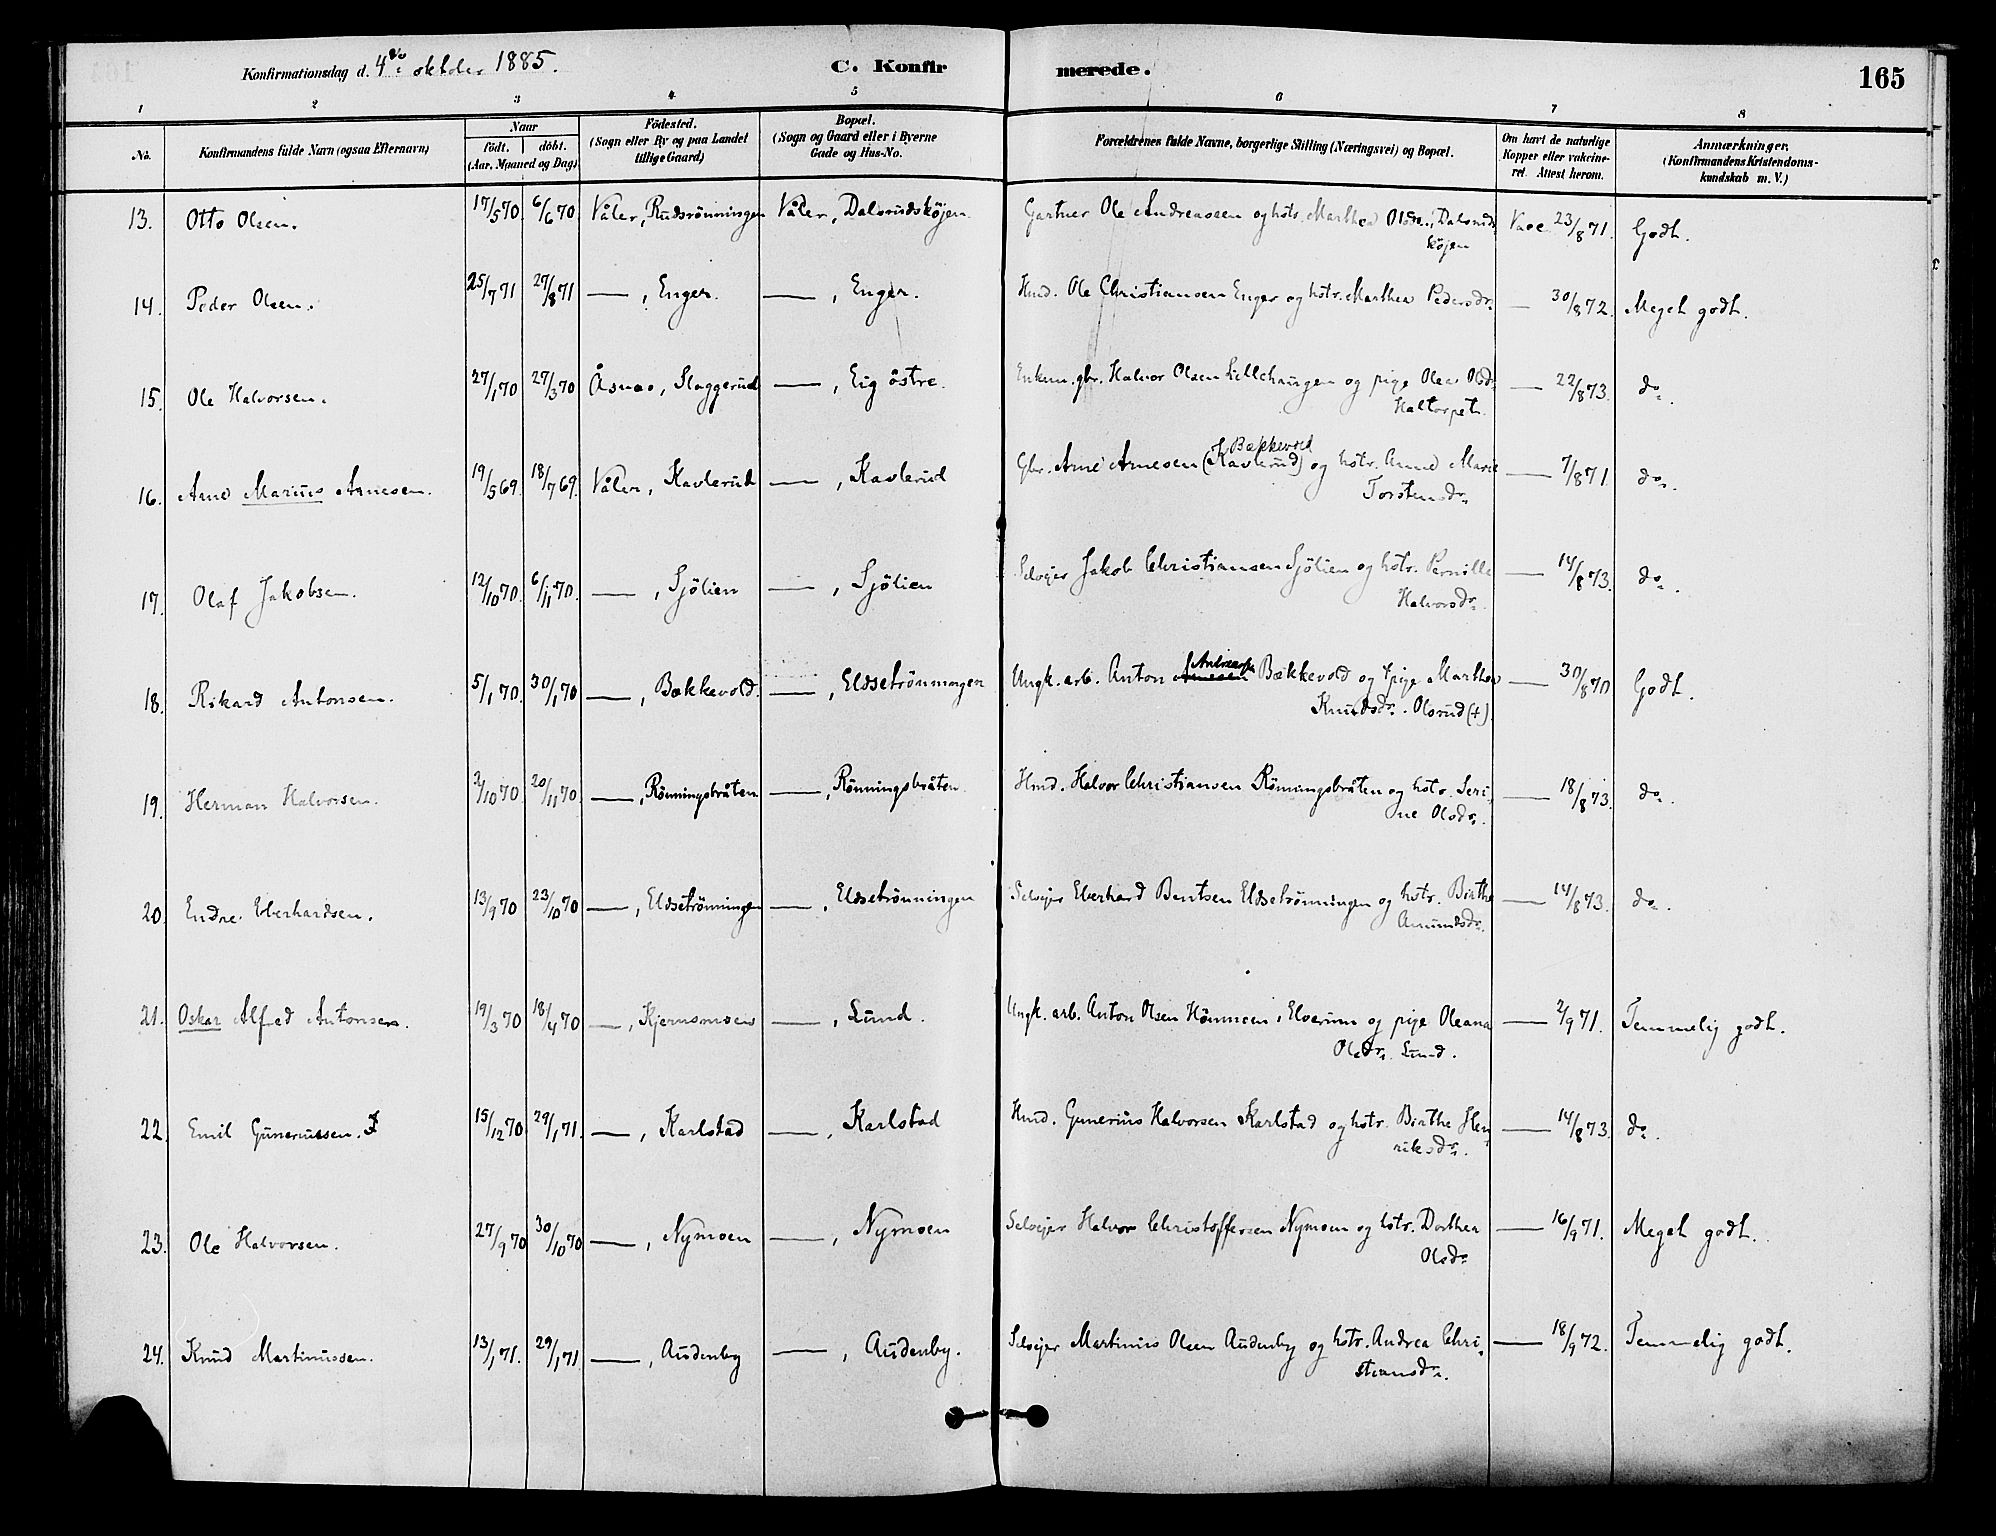 Konfirmationsdag d. 4de oktober 1885. C. Konfirmerede. 165
1 2 3 4 5 6 7 8
No. Konfirmandens fulde Navn (ogsaa Efternavn) Naar födt. döbt. (Aar, Maaned og Dag) Födested. (Sogn eller By og paa Landet tillige Gaard) Bopæl. (Sogn og Gaard eller i Byerne Gade og Hus-No. Forældrenes fulde Navne, borgerlige Stilling (Næringsvei) og Bopæl. Om havt de naturlige Kopper eller vakcineret. Attest herom. Anmærkninger. (Konfirmandens Kristendomskundskab m. V.)
13. Otto Olsen. 17/5 70. 6/6 70. Våler, Rudsrönningen Våler, Dalsrudskøjen. Gartner Ole Andreassen og hstr. Marthea Olsdr., Dalsruds Vacc. 23/8 71. Godt.
køjen
14. Peder Olsen. 25/7 71 27/8 71 —, Enger. —, Enger. Hmd. Ole Christiansen Enger og hstr. Marthea Pedersdr. — 30/8 72. Meget godt.
15. Ole Halvorsen. 27/1 70 27/3 70 Åsnæs, Slaggerud —, Eig östre. Enkem. gbr. Halvor Olsen Lillehaugen og pige Olea Olsdr. — 22/8 73. do.
Haltorpet.
16. Arne Marius Arnesen. 19/5 69. 18/7 69. Våler, Kavlerud —, Kavlerud Gbr. Arne Arnesen (Kavlerud) Bækkevold og hstr. Anne Marie — 7/8 71. do.
Torstensdr.
17. Olaf Jakobsen. 12/10 70. 6/11 70. —, Sjölien —, Sjölien Selvejer Jakob Christiansen Sjölien og hstr. Pernille — 14/8 73. do.
Halvorsdr.
18. Rikard Antonsen. 5/1 70. 30/1 70 —, Bækkevold. —, Eldsetrönningen Ungk. arb. Anton Arnesen Andreassen Bækkevold og pige Marthea — 30/8 70 Godt.
Knudsdr. Olsrud (+).
19. Herman Halvorsen. 2/10 70. 20/11 70. —, Rönningsbråten —, Rönningsbråten. Hmd. Halvor Christiansen Rönningsbråten og hstr. Seri- — 18/8 73. do.
ne Olsdr.
20. Endre Eberhardsen. 13/9 70 23/10 70 —, Eldsetrönningen —, Eldsetrönningen Selvejer Eberhard Berntsen Eldsetrönningen og hstr. Birthe — 14/8 73. do.
Amundsdr.
21. Oskar Alfred Antonsen. 19/3 70 18/4 70 —, Kjernsmoen —, Lund. Ungk. arb. Anton Olsen Hömmoen i Elverum og pige Oleana — 2/9 71. Temmelig godt.
Olsdr. Lund.
22. Emil Gunerussen. 15/12 70. 29/1 71. —, Karlstad —, Karlstad Hmd. Gunerius Halvorsen Karlstad og hstr. Birthe Hen- — 14/8 73. do.
riksdr.
23. Ole Halvorsen. 27/9 70 30/10 70 —, Nymoen —, Nymoen Selvejer Halvor Christoffersen Nymoen og hstr. Dorthea — 16/9 71. Meget godt.
Olsdr.
24. Knud Martinussen. 13/1 71. 29/1 71. —, Audenby —, Audenby. Selvejer Martinus Olsen Audenby og hstr. Andrea Chri- — 18/9 72. Temmelig godt.
stiansdr.